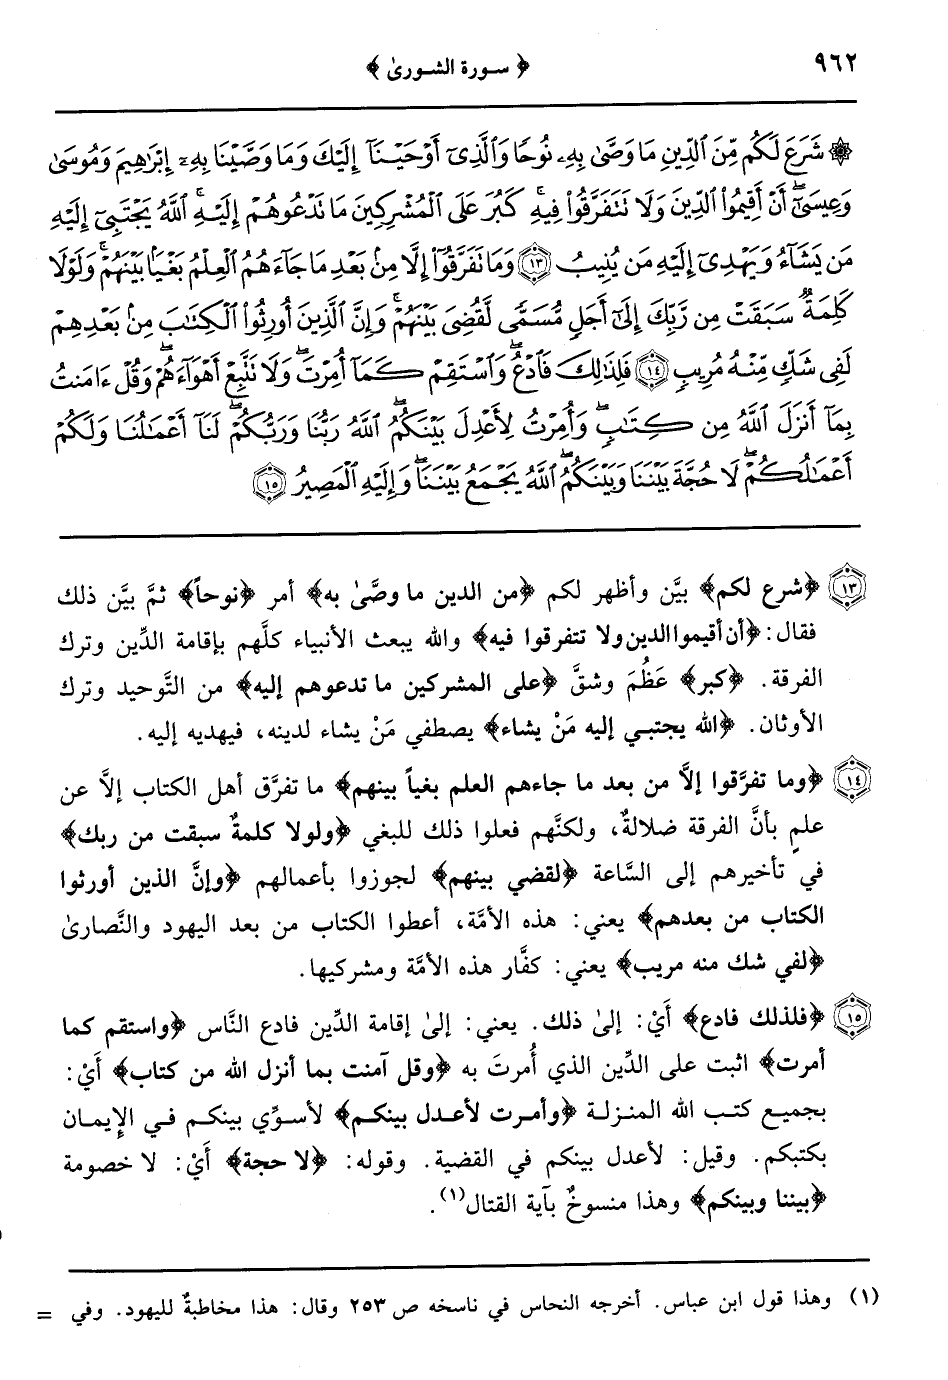 ٩٦٢ ﴿ سورة الشورىٰ ﴾
۞ شَرَعَ لَكُم مِّنَ ٱلدِّينِ مَا وَصَّىٰ بِهِۦ نُوحًا وَٱلَّذِىٓ أَوْحَيْنَآ إِلَيْكَ وَمَا وَصَّيْنَا بِهِۦٓ إِبْرَٰهِيمَ وَمُوسَىٰ
وَعِيسَىٰٓ ۖ أَنْ أَقِيمُوا۟ ٱلدِّينَ وَلَا تَتَفَرَّقُوا۟ فِيهِ ۚ كَبُرَ عَلَى ٱلْمُشْرِكِينَ مَا تَدْعُوهُمْ إِلَيْهِ ۚ ٱللَّهُ يَجْتَبِىٓ إِلَيْهِ
مَن يَشَآءُ وَيَهْدِىٓ إِلَيْهِ مَن يُنِيبُ ١٣ وَمَا تَفَرَّقُوٓا۟ إِلَّا مِنۢ بَعْدِ مَا جَآءَهُمُ ٱلْعِلْمُ بَغْيًۢا بَيْنَهُمْ ۚ وَلَوْلَا
كَلِمَةٌ سَبَقَتْ مِن رَّبِّكَ إِلَىٰٓ أَجَلٍ مُّسَمًّى لَّقُضِىَ بَيْنَهُمْ ۚ وَإِنَّ ٱلَّذِينَ أُورِثُوا۟ ٱلْكِتَٰبَ مِنۢ بَعْدِهِمْ
لَفِى شَكٍّ مِّنْهُ مُرِيبٍ ١٤ فَلِذَٰلِكَ فَٱدْعُ ۖ وَٱسْتَقِمْ كَمَآ أُمِرْتَ ۖ وَلَا تَتَّبِعْ أَهْوَآءَهُمْ ۖ وَقُلْ ءَامَنتُ
بِمَآ أَنزَلَ ٱللَّهُ مِن كِتَٰبٍ ۖ وَأُمِرْتُ لِأَعْدِلَ بَيْنَكُمُ ۖ ٱللَّهُ رَبُّنَا وَرَبُّكُمْ ۖ لَنَآ أَعْمَٰلُنَا وَلَكُمْ
أَعْمَٰلُكُمْ ۖ لَا حُجَّةَ بَيْنَنَا وَبَيْنَكُمُ ۖ ٱللَّهُ يَجْمَعُ بَيْنَنَا ۖ وَإِلَيْهِ ٱلْمَصِيرُ ١٥
١٣ ﴿شرع لكم﴾ بيَّن وأظهر لكم ﴿من الدين ما وصَّىٰ به﴾ أمر ﴿نوحاً﴾ ثمَّ بيَّن ذلك
فقال: ﴿أن أقيموا الدين ولا تتفرقوا فيه﴾ والله يبعث الأنبياء كلَّهم بإقامة الدِّين وترك
الفرقة. ﴿كبر﴾ عَظُمَ وشقَّ ﴿على المشركين ما تدعوهم إليه﴾ من التَّوحيد وترك
الأوثان. ﴿الله يجتبي إليه مَنْ يشاء﴾ يصطفي مَنْ يشاء لدينه، فيهديه إليه.
١٤ ﴿وما تفرَّقوا إلَّا من بعد ما جاءهم العلم بغياً بينهم﴾ ما تفرَّق أهل الكتاب إلَّا عن
علمٍ بأنَّ الفرقة ضلالةٌ، ولكنَّهم فعلوا ذلك للبغي ﴿ولولا كلمةٌ سبقت من ربك﴾
في تأخيرهم إلى السَّاعة ﴿لقضي بينهم﴾ لجوزوا بأعمالهم ﴿وإنَّ الذين أورثوا
الكتاب من بعدهم﴾ يعني: هذه الأمَّة، أعطوا الكتاب من بعد اليهود والنَّصارىٰ
﴿لفي شك منه مريب﴾ يعني: كفَّار هذه الأمَّة ومشركيها.
١٥ ﴿فلذلك فادع﴾ أَيْ: إلىٰ ذلك. يعني: إلىٰ إقامة الدِّين فادع النَّاس ﴿واستقم كما
أمرت﴾ اثبت على الدِّين الذي أُمرتَ به ﴿وقل آمنت بما أنزل الله من كتاب﴾ أَيْ:
بجميع كتب الله المنزلة ﴿وأمرت لأعدل بينكم﴾ لأسوِّي بينكم في الإِيمان
بكتبكم. وقيل: لأعدل بينكم في القضية. وقوله: ﴿لا حجة﴾ أَيْ: لا خصومة
﴿بيننا وبينكم﴾ وهذا منسوخٌ بآية القتال(١).
(١) وهذا قول ابن عباس. أخرجه النحاس في ناسخه ص ٢٥٣ وقال: هذا مخاطبةٌ لليهود. وفي =